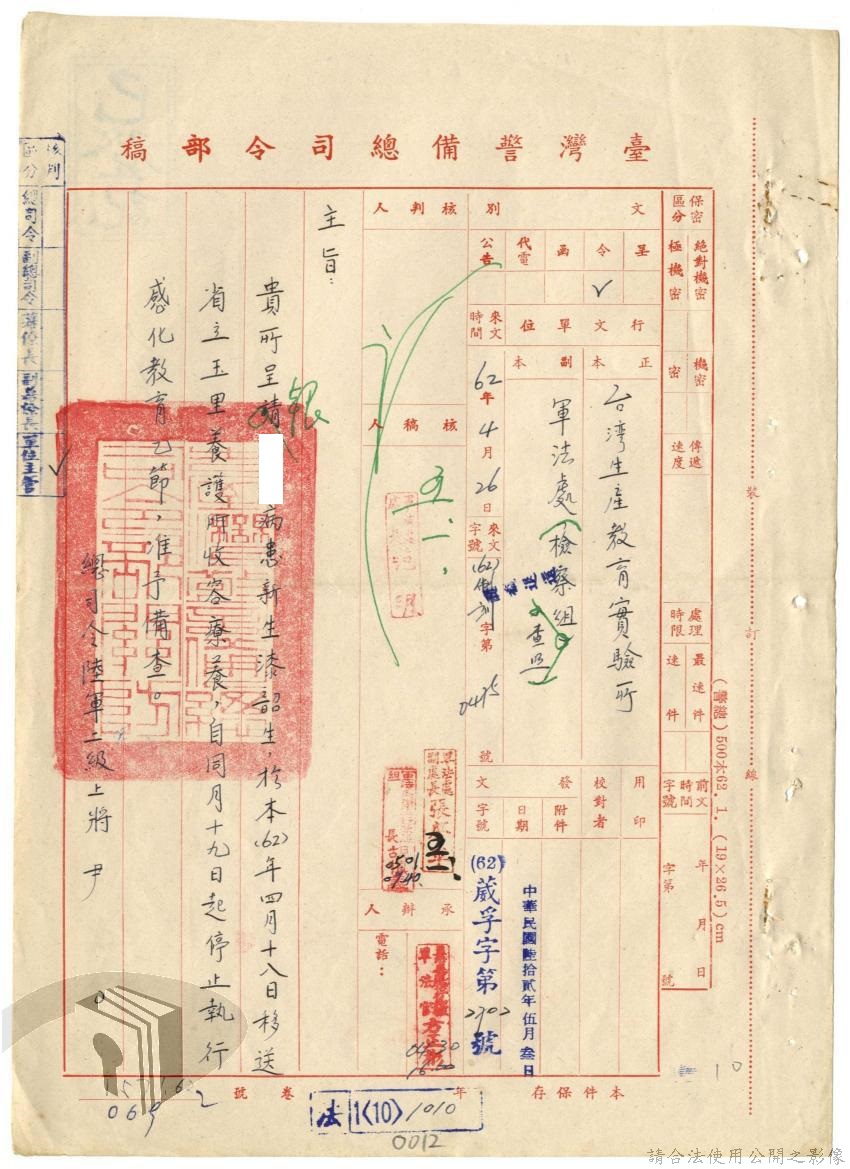 臺灣警備總司令部稿
保密區分
絕對機密
極機密
機密
密
傳遞速度
處理時限
最速件
速件
前文時間字號
年 月 日
字第 號
文別
呈
令
函
代電
公告
核判人
行文單位
正本
副本
台湾生產教育實驗所
軍法處(檢察組)查照
來文時間
62年4月26日
來文字號
字第0495號
核稿人
承辦人
電話：
用印
校對者
發文
附件
日期
字號
中華民國陸拾貳年伍月叁日
(62)葳孚字第2702號
主旨：
貴所呈請
報
病患新生漆韶生，於本(62)年四月十八日移送
省立玉里養護所收容療養，自同月十九日起停止執行
感化教育乙節，准予備查。
總司令陸軍二級上將尹
核判區分
總司令
副總司令
參謀長
副參謀長
單位主管
軍法處副處長張
0501
0740
0430
1600
五一、
裝
訂
線
(警總)500本62.1.(19×26.5)cm
10
本件保存
年
卷號
法1(10)1010
0012
請合法使用公開之影像